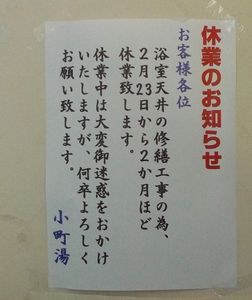 休業のお知らせ
お客様各位
浴室天井の修繕工事の為、
2月23日から2か月ほど
休業致します。
休業中は大変御迷惑をおかけ
いたしますが、何卒よろしく
お願い致します。
小町湯